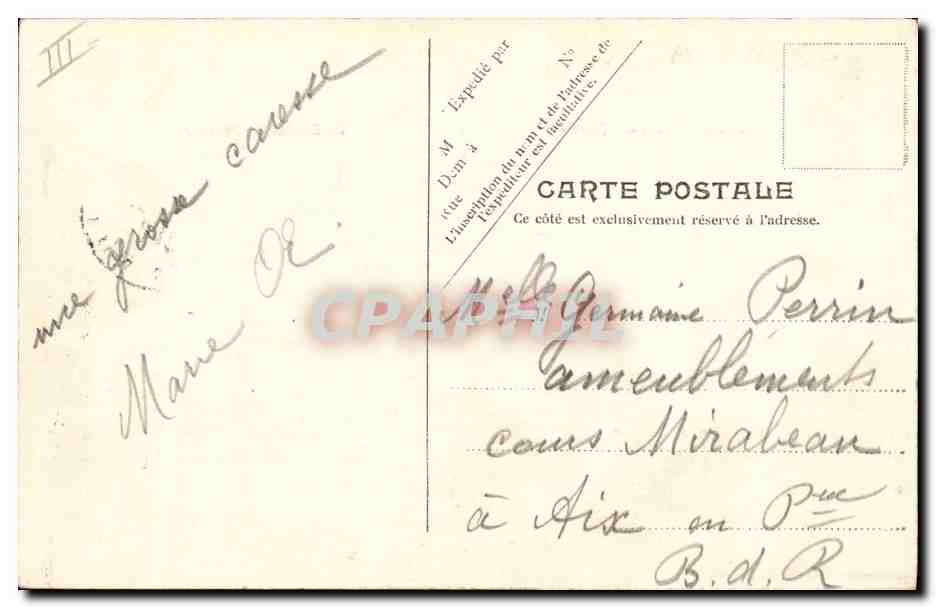 III
une grosse caresse
Marie
Expédié par
M
Dem. à
Rue Nº
L'inscription du nom et de l'adresse de
l'expéditeur est facultative.
CARTE POSTALE
Ce côté est exclusivement réservé à l'adresse.
Melle Germaine Perrin
ameublements
cours Mirabeau
à Aix en Pce
B. d. R
CPAPHIL